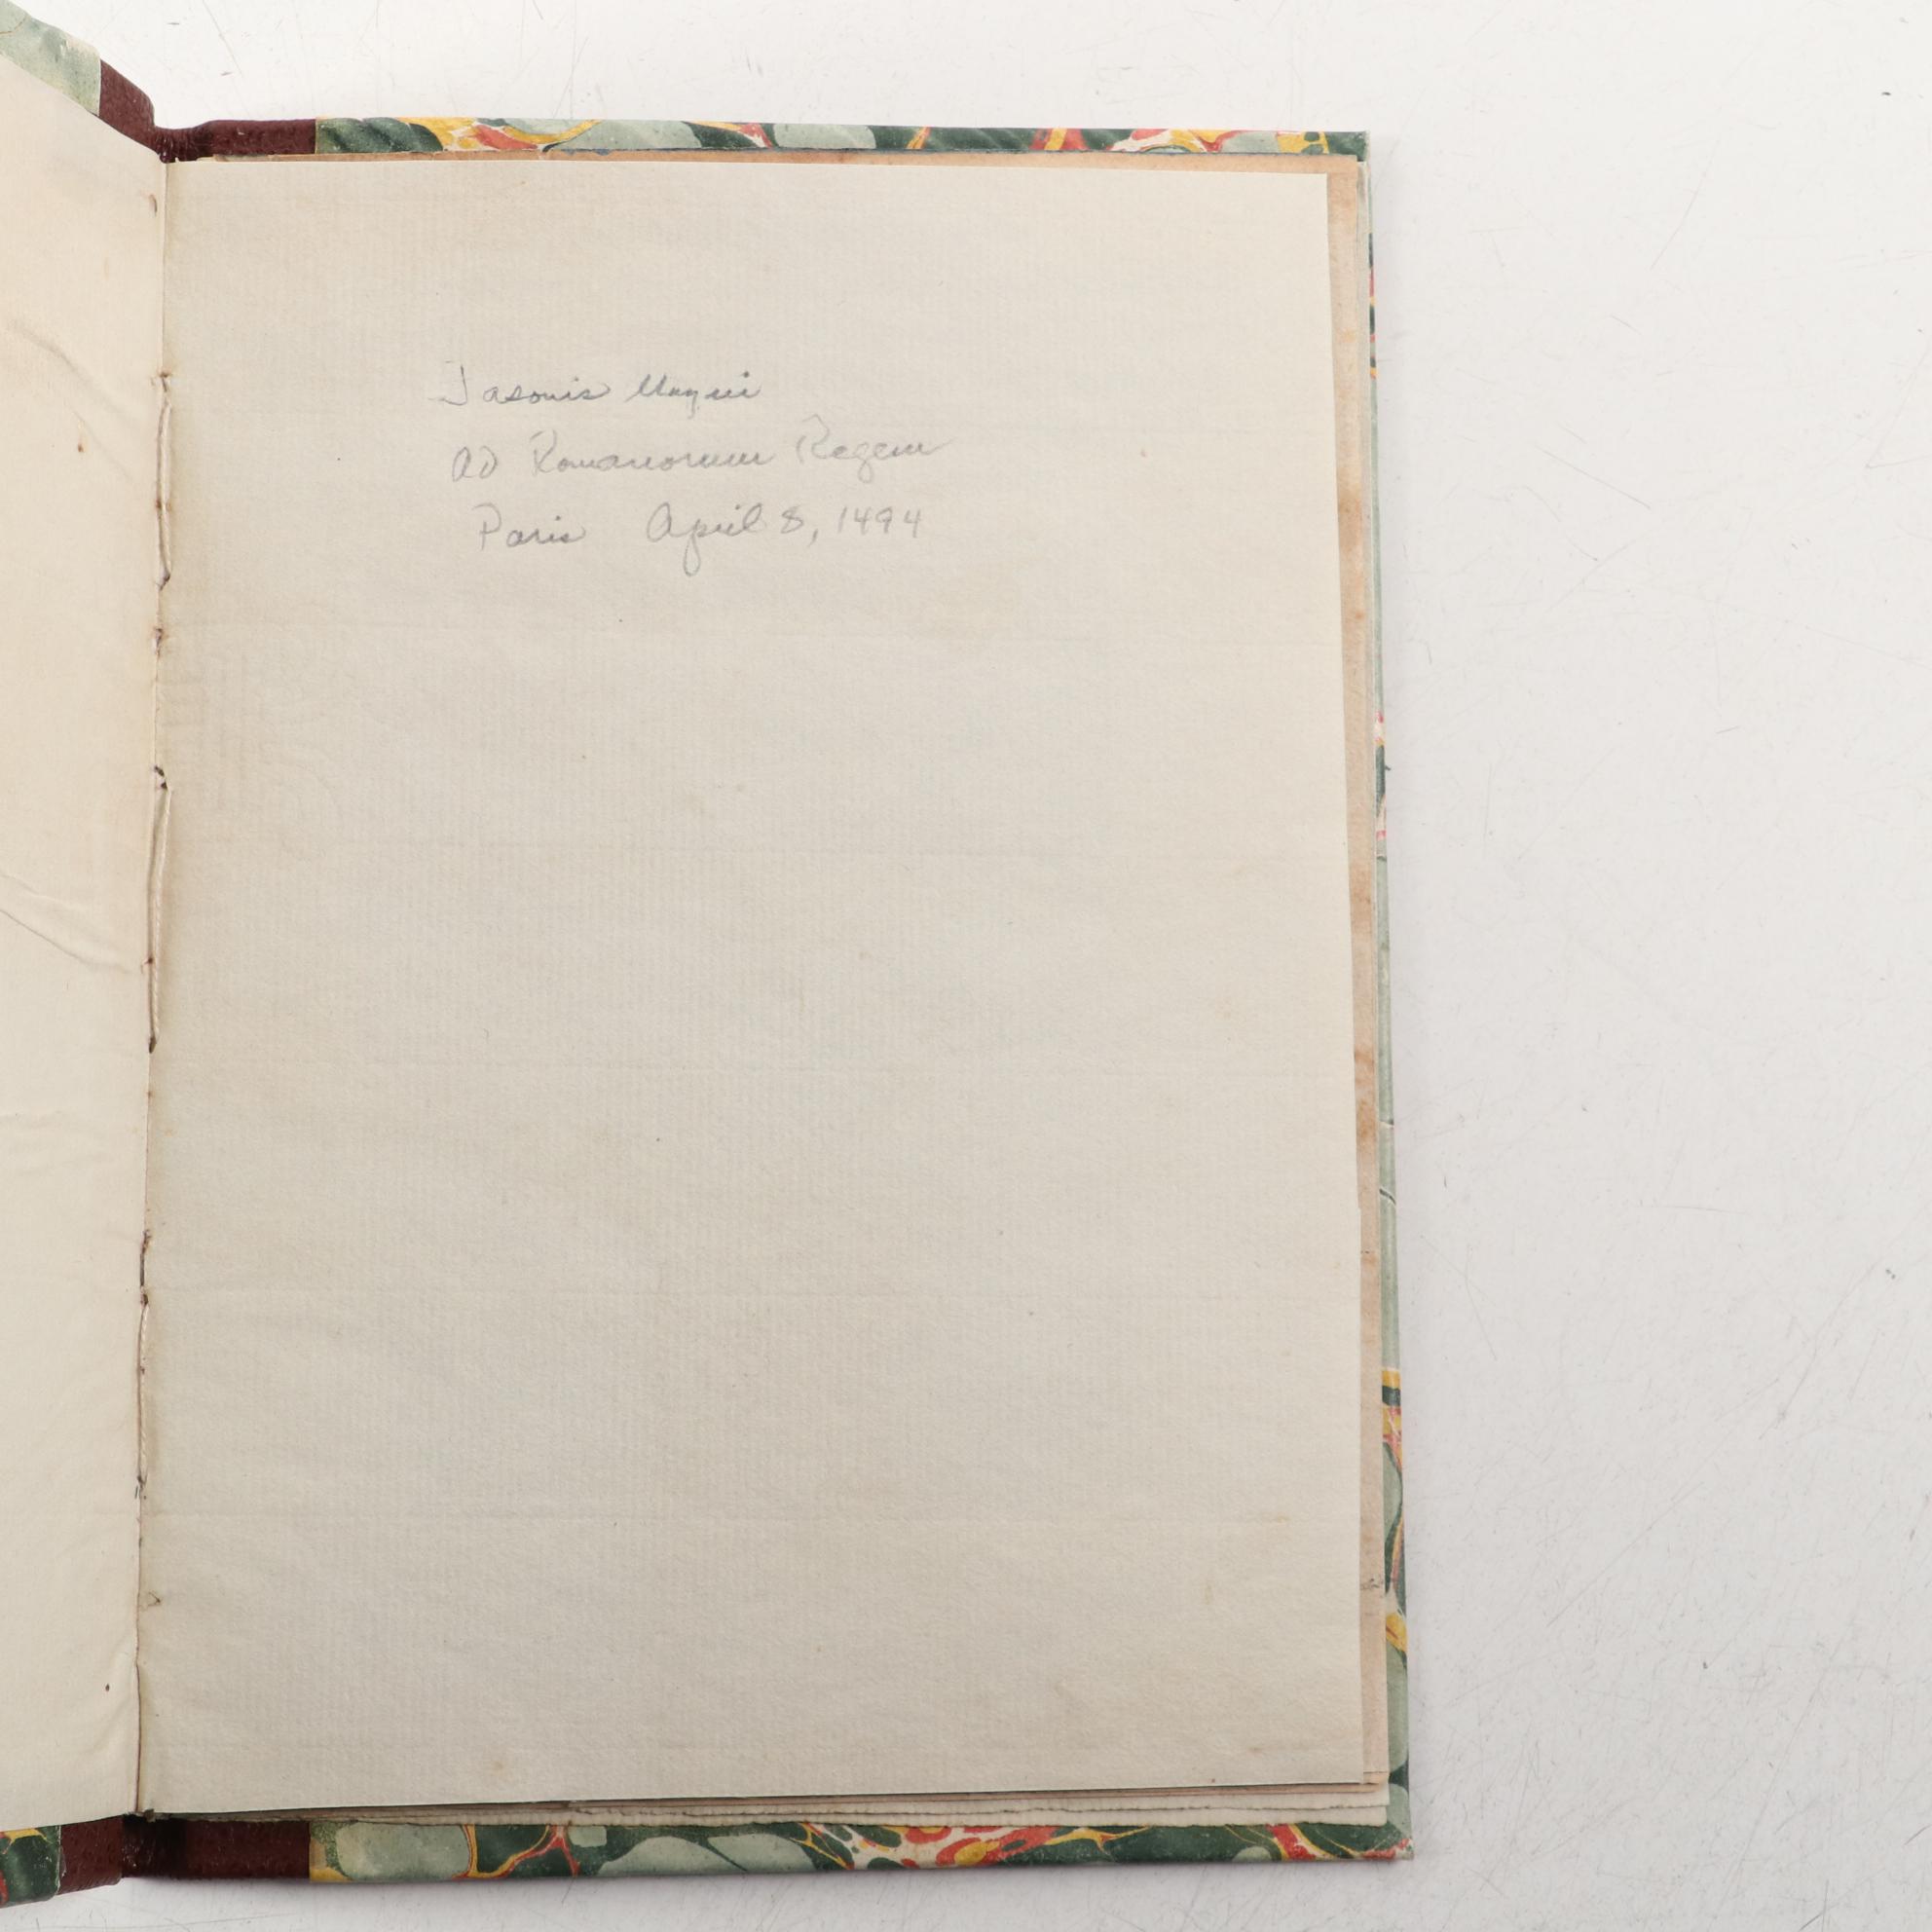 Jasonis Mayni
ad Romanorum Regem
Paris April 8, 1494